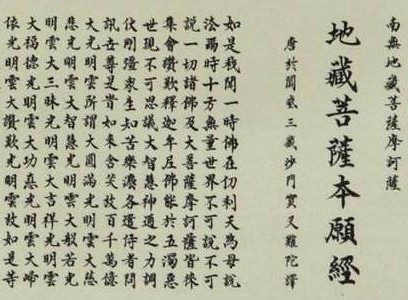 南無地藏菩薩摩訶薩
地藏菩薩本願經
唐於闐國三藏沙門實叉難陀譯
如是我聞一時佛在忉利天為母說
法爾時十方無量世界不可說不可
說一切諸佛及大菩薩摩訶薩皆來
集會讚歎釋迦牟尼佛能於五濁惡
世現不可思議大智慧神通之力調
伏剛彊眾生知苦樂法各遣侍者問
訊世尊是時如來含笑放百千萬億
大光明雲所謂大圓滿光明雲大慈
悲光明雲大智慧光明雲大般若光
明雲大三昧光明雲大吉祥光明雲
大福德光明雲大功德光明雲大歸
依光明雲大讚歎光明雲放如是等